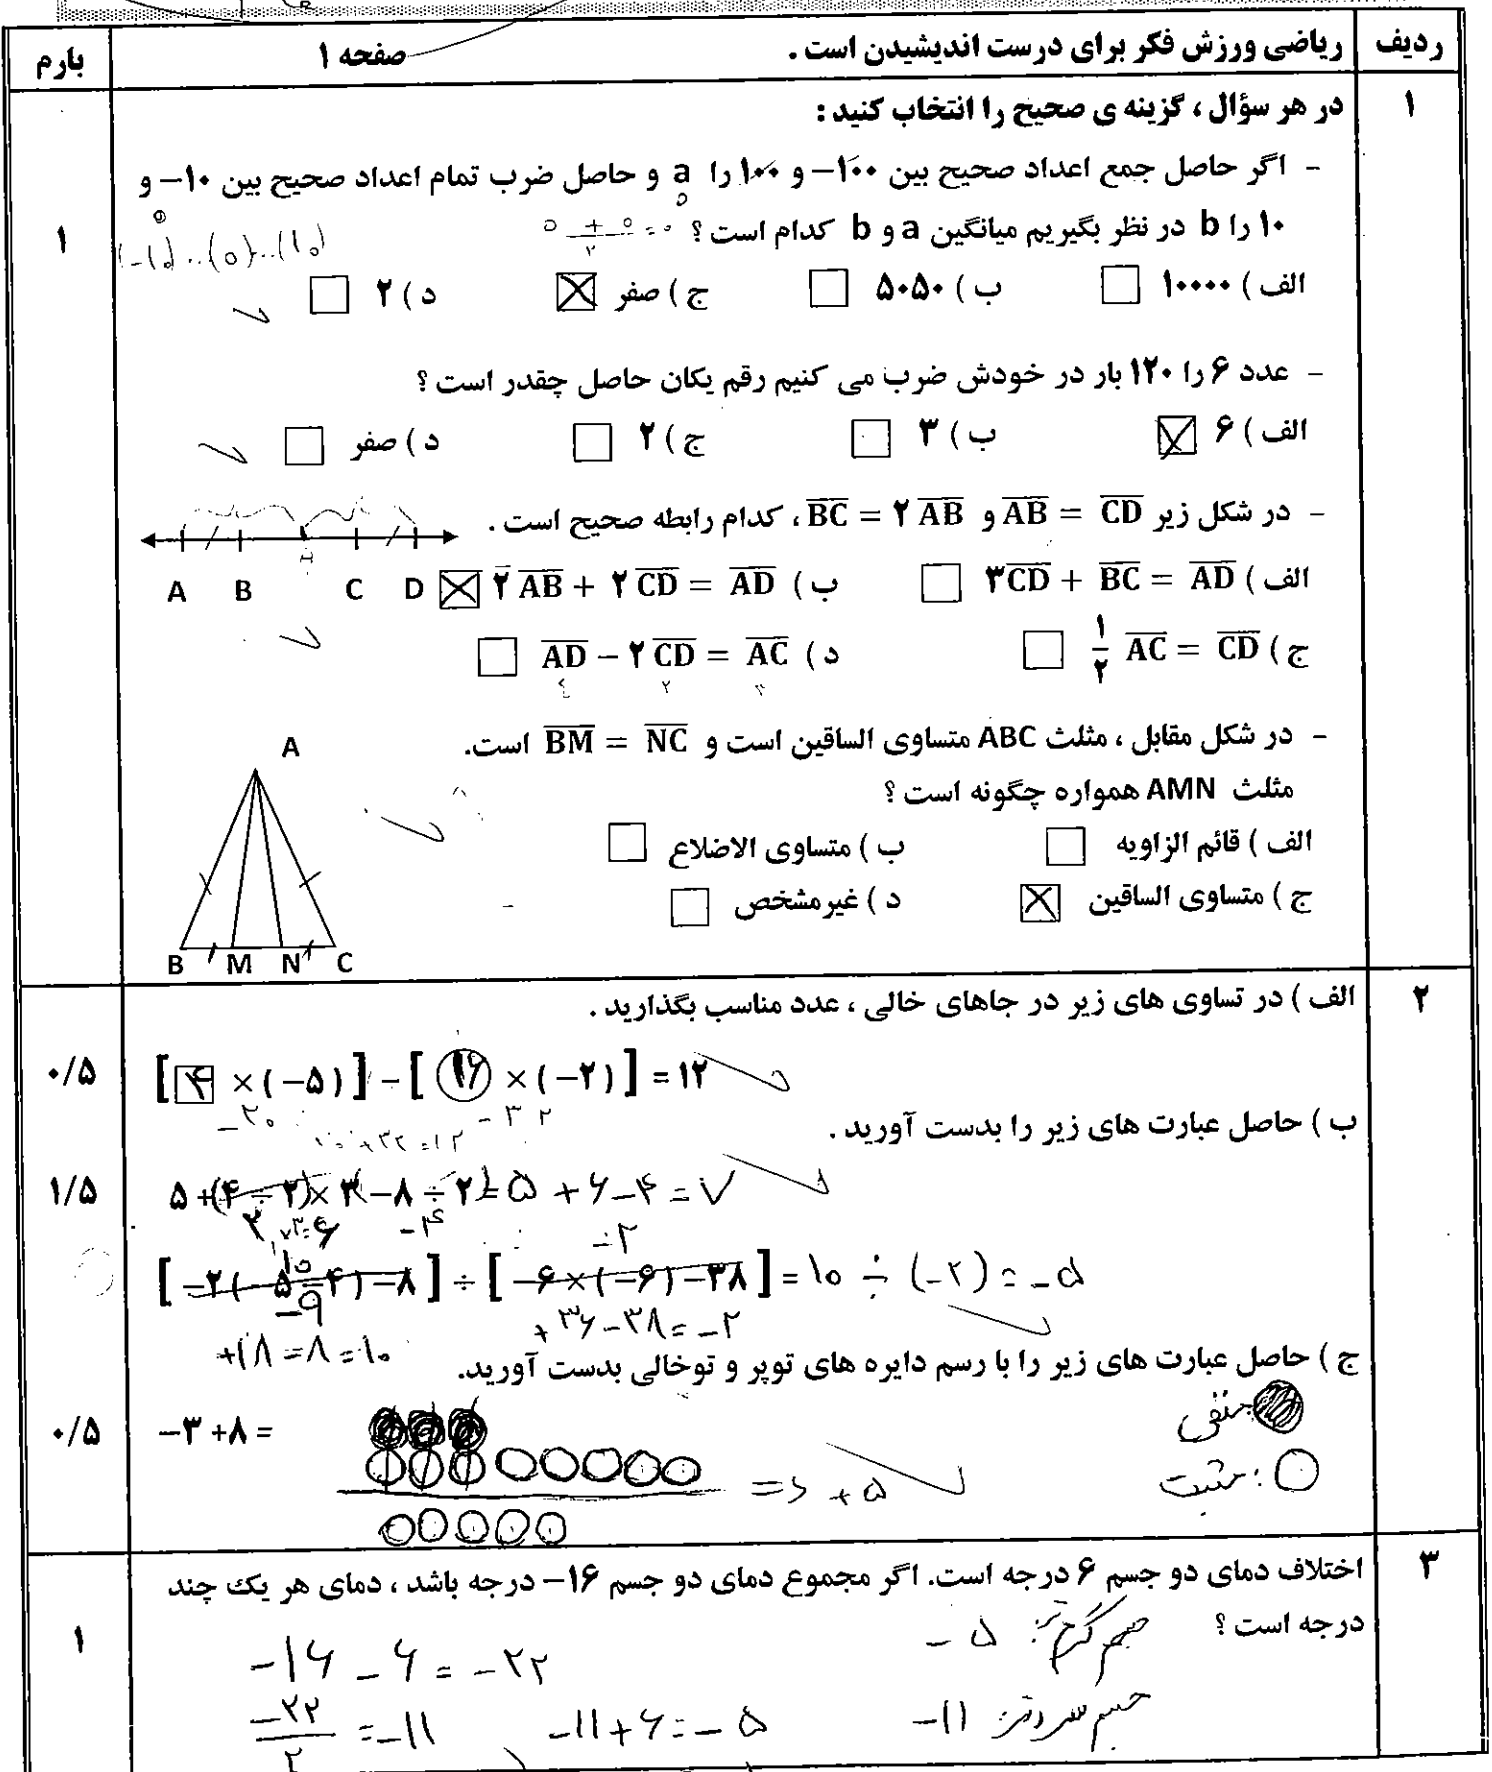 ردیف ریاضی ورزش فکر برای درست اندیشیدن است . صفحه ۱ بارم
۱ در هر سؤال ، گزینه ی صحیح را انتخاب کنید :
- اگر حاصل جمع اعداد صحیح بین ۱۰۰− و ۱۰۰ را a و حاصل ضرب تمام اعداد صحیح بین ۱۰− و
۱۰ را b در نظر بگیریم میانگین a و b کدام است ؟ ۱
(-۱۰)..(۰)..(۱۰)
الف ) ۱۰۰۰۰ ب ) ۵۰۵۰ ج ) صفر د ) ۲
- عدد ۶ را ۱۲۰ بار در خودش ضرب می کنیم رقم یکان حاصل چقدر است ؟
الف ) ۶ ب ) ۳ ج ) ۲ د ) صفر
- در شکل زیر AB = CD و BC = ۲ AB ، کدام رابطه صحیح است .
A B C D
الف ) ۳CD + BC = AD ب ) ۲ AB + ۲ CD = AD
ج ) ۱/۲ AC = CD د ) AD − ۲ CD = AC
- در شکل مقابل ، مثلث ABC متساوی الساقین است و BM = NC است.
مثلث AMN همواره چگونه است ؟
الف ) قائم الزاویه ب ) متساوی الاضلاع
ج ) متساوی الساقین د ) غیرمشخص
A
B M N C
۲ الف ) در تساوی های زیر در جاهای خالی ، عدد مناسب بگذارید .
۰/۵ [۴ ×(−۵)] − [۱۶ ×(−۲)] = ۱۲
-۲۰ -۳۲
ب ) حاصل عبارت های زیر را بدست آورید .
۱/۵ ۵+(۴÷۲)×۳(−۸÷۲)= ۵+۶-۴=۷
۲ ×۳=۶ -۴
[−۲(−۵−۴)−۸] ÷ [−۶×(−۶)−۳۸] = ۱۰ ÷ (-۲) = -۵
۱۰ -۲
-۹ +۳۶-۳۸=-۲
+۱۸-۸=۱۰
ج ) حاصل عبارت های زیر را با رسم دایره های توپر و توخالی بدست آورید.
۰/۵ −۳+۸=
منفی
مثبت :
=> +۵
۳ اختلاف دمای دو جسم ۶ درجه است. اگر مجموع دمای دو جسم ۱۶− درجه باشد ، دمای هر یک چند
درجه است ؟ ۱
جسم گرم تر: -۵
-۱۶-۶=-۲۲
جسم سردتر: -۱۱
-۲۲/۲ =-۱۱ -۱۱+۶=-۵